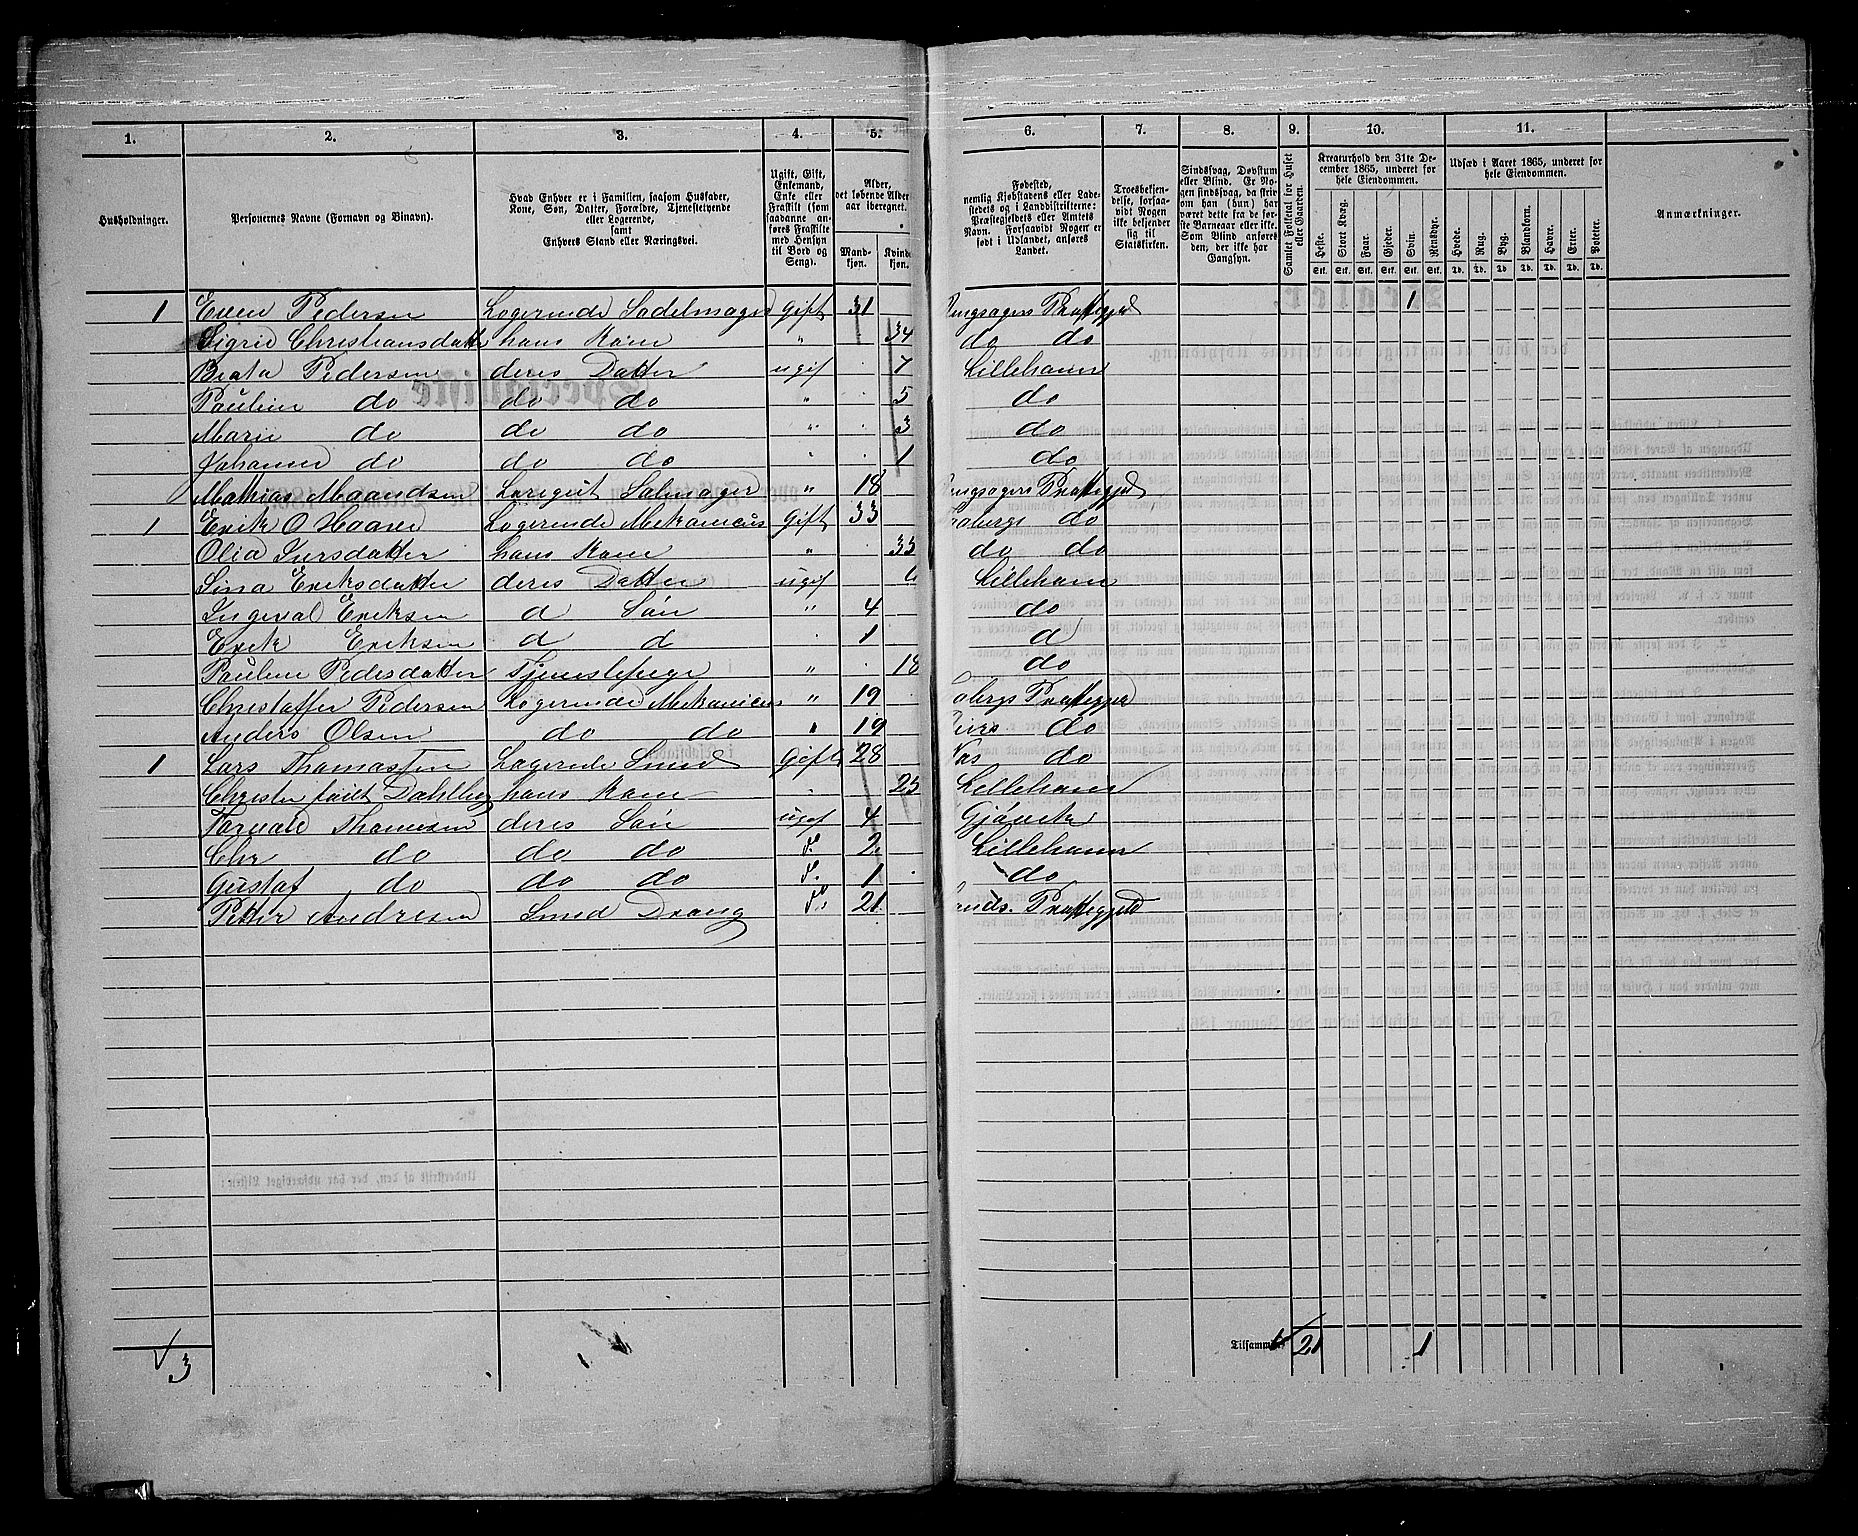 1. 2. 3. 4. 5. 6. 7. 8. 9. 10. 11.
Husholdninger.
Personernes Navne (Fornavn og Binavn).
Hvad Enhver er i Familien, saasom Husfader,
Kone, Søn, Datter, Forældre, Tjenestetyende
eller Logerende,
samt
Enhvers Stand eller Næringsvei.
Ugift, Gift,
Enkemand,
Enke eller
Fraskilt (som
saadanne an-
føres Fraskilte
med Hensyn
til Bord og
Seng).
Alder,
det løbende Alders-
aar iberegnet.
Mand-
kjøn.
Kvinde-
kjøn.
Fødested,
nemlig Kjøbstadens eller Lade-
stedets og i Landdistrikterne:
Præstegjeldets eller Amtets
Navn. Forsaavidt Nogen er
født i Udlandet, anføres
Landet.
Troesbekjen-
delse, forsaa-
vidt Nogen
ikke bekjender
sig til
Statskirken.
Sindssvag, Døvstum
eller Blind. Er No-
gen sindssvag, da skriv
om han (hun) har
været dette fra de før-
ste Barneaar eller ikke.
Som Blind anføres
den, der ikke har
Gangsyn.
Samlet Folketal for Huset
eller Gaarden.
Kreaturhold den 31te De-
cember 1865, underet for
hele Eiendommen.
Heste. Stort Kvæg. Faar. Gjeder. Svin. Rensdyr.
Stk. Stk. Stk. Stk. Stk. Stk.
Udsæd i Aaret 1865, underet for
hele Eiendommen.
Hvede. Rug. Byg. Blandkorn. Havre. Erter. Poteter.
Td. Td. Td. Td. Td. Td. Td.
Anmærkninger.
1 Even Pedersen Logerende Sadelmager Gift 31 Ringsagers Præstegjeld 1
Sigrid Christiansdatter hans Kone " 34 do do
Beata Pedersen deres Datter ugif 7 Lillehamr
Pauline do do do " 5 do
Marie do do do " 3 do
Johanne do do do " 1 do
Mathias Maandsen Læregut Salmager " 18 Ringsagers Præstegjeld
1 Erik O Haave Logerende Mekanicus Gift 33 Faabergs do
Olia Iversdatter hans Kone " 33 do do
Sina Eriksdatter deres Datter ugif 6 Lillehamr
Ingeval Eriksen d Søn " 4 do
Erik Eriksen d d " 1 d
Pauline Pedersdatter Tjenestepige " 18 do
Christoffer Pedersen Logerende Mekanicus " 19 Faabergs Præstegjeld
Anders Olsen do do " 19 do
1 Lars Thomassen Logerende Smed Gift 28 do
Christn født Dahlberg hans Kone " 25 Lillehamr
Torvald Thomesen deres Søn ugif 4 Gjøvik
Chr do do do d. 2 Lillehamr
Gustaf do do do d. 1 do
Petter Andresen Smed Dreng d. 21 Lands Præstegjeld
3
Tilsammen 21 1